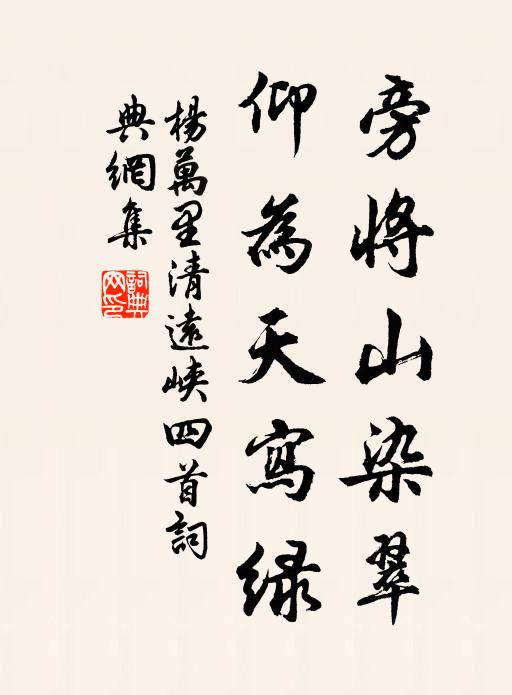 旁將山染翠
仰為天寫綠
楊萬里清遠峽四首詞
典網集
詞典網印